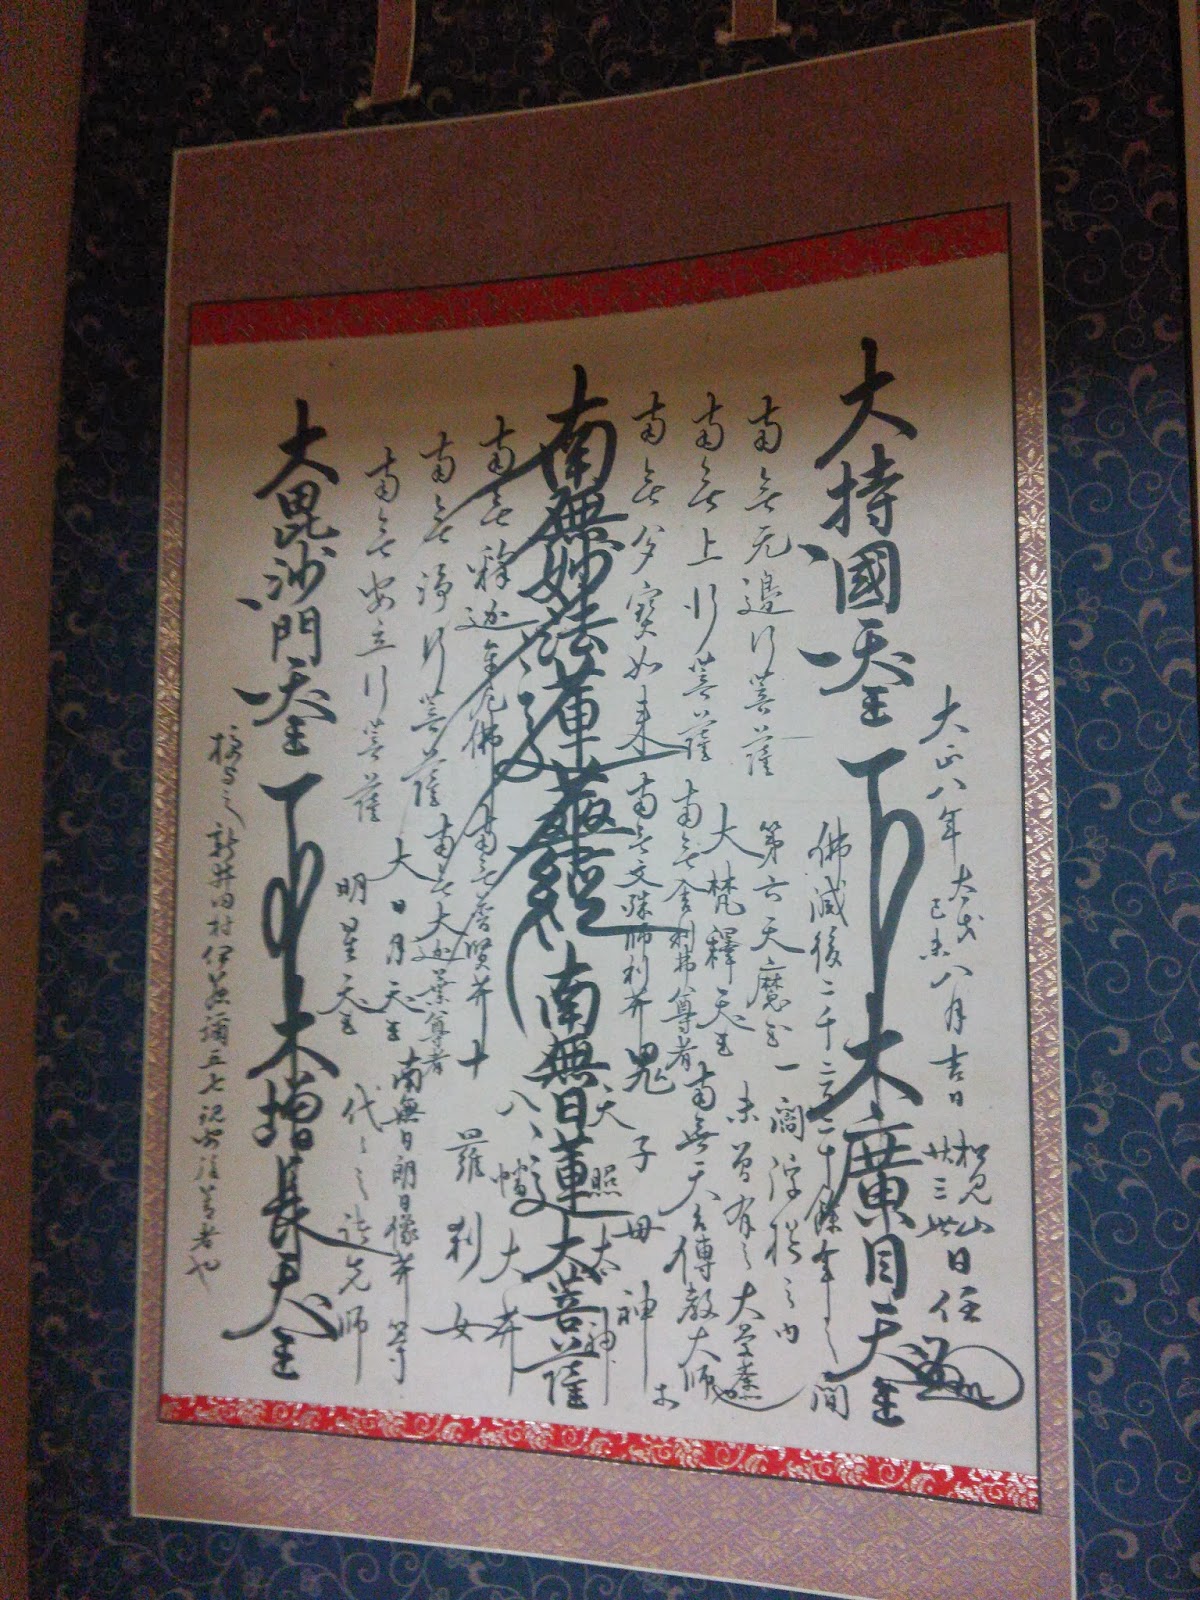 大正八年 太歳己未 八月吉日 松見山 廿三世 日住
大持國天王 大廣目天王
佛滅後二千二百二十餘年之間
一閻浮提之内
未曽有之大
南無无邊行菩薩 第六天魔王
大梵釋天王
南無上行菩薩 南無舎利弗尊者 南無天台傳教大師
南無多寳如来 南無文殊師利井 鬼子母神
天照太神
南無妙法蓮華經 南無日蓮大菩薩
八幡大井
南無釋迦牟尼佛 南無普賢井 十羅刹女
南無淨行菩薩 南無大迦葉尊者
大日月天王 南無日朗日像井等
南無安立行菩薩 明星天王 代々之諸先師
大毘沙門天王 大増長天王
授与之 新井田村伊藤彌五七